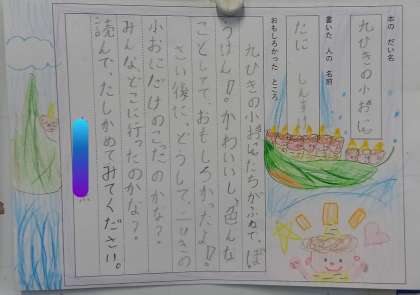 本の だい名
九ひきの小おに
書いた 人の 名前
たに しんすけ
おもしろかった ところ
九ひきの小おにたちがふねで、ぼ
うけん!。かわいいし、色んな
ことしてて、おもしろかったよ!。
さい後に、どうして、二ひきの
小おにだけのこったのかな?
みんなどこに行ったのかな?
読んで、たしかめてみてください。